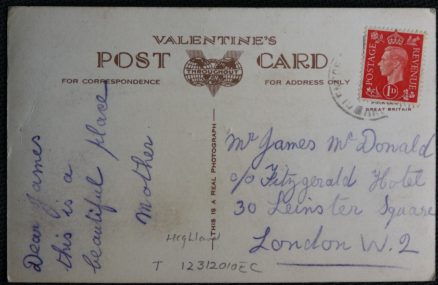 VALENTINE'S
POST CARD
FAMOUS THROUGHOUT THE WORLD
FOR CORRESPONDENCE
FOR ADDRESS ONLY
POSTAGE
REVENUE
1D
GREAT BRITAIN
THIS IS A REAL PHOTOGRAPH
Dear James
this is a
beautiful place
Mother.
Mr James McDonald
c/o Fitzgerald Hotel
30 Leinster Square
London W.2
Highland
T 12312010EC